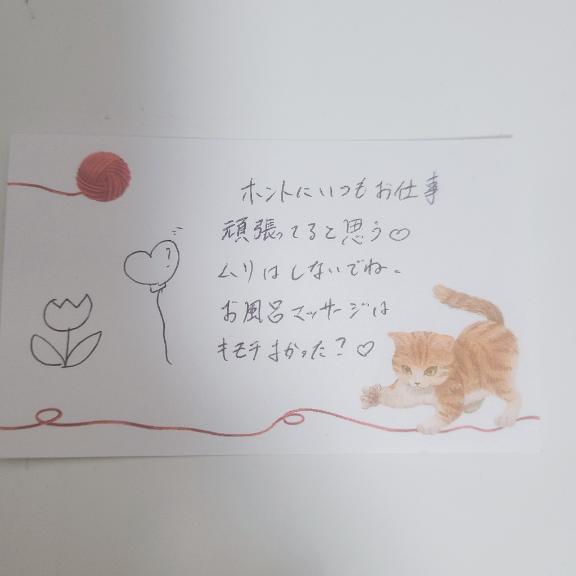 ホントにいつもお仕事
頑張ってると思う♡
ムリはしないでね。
お風呂マッサージは
キモチよかった？♡